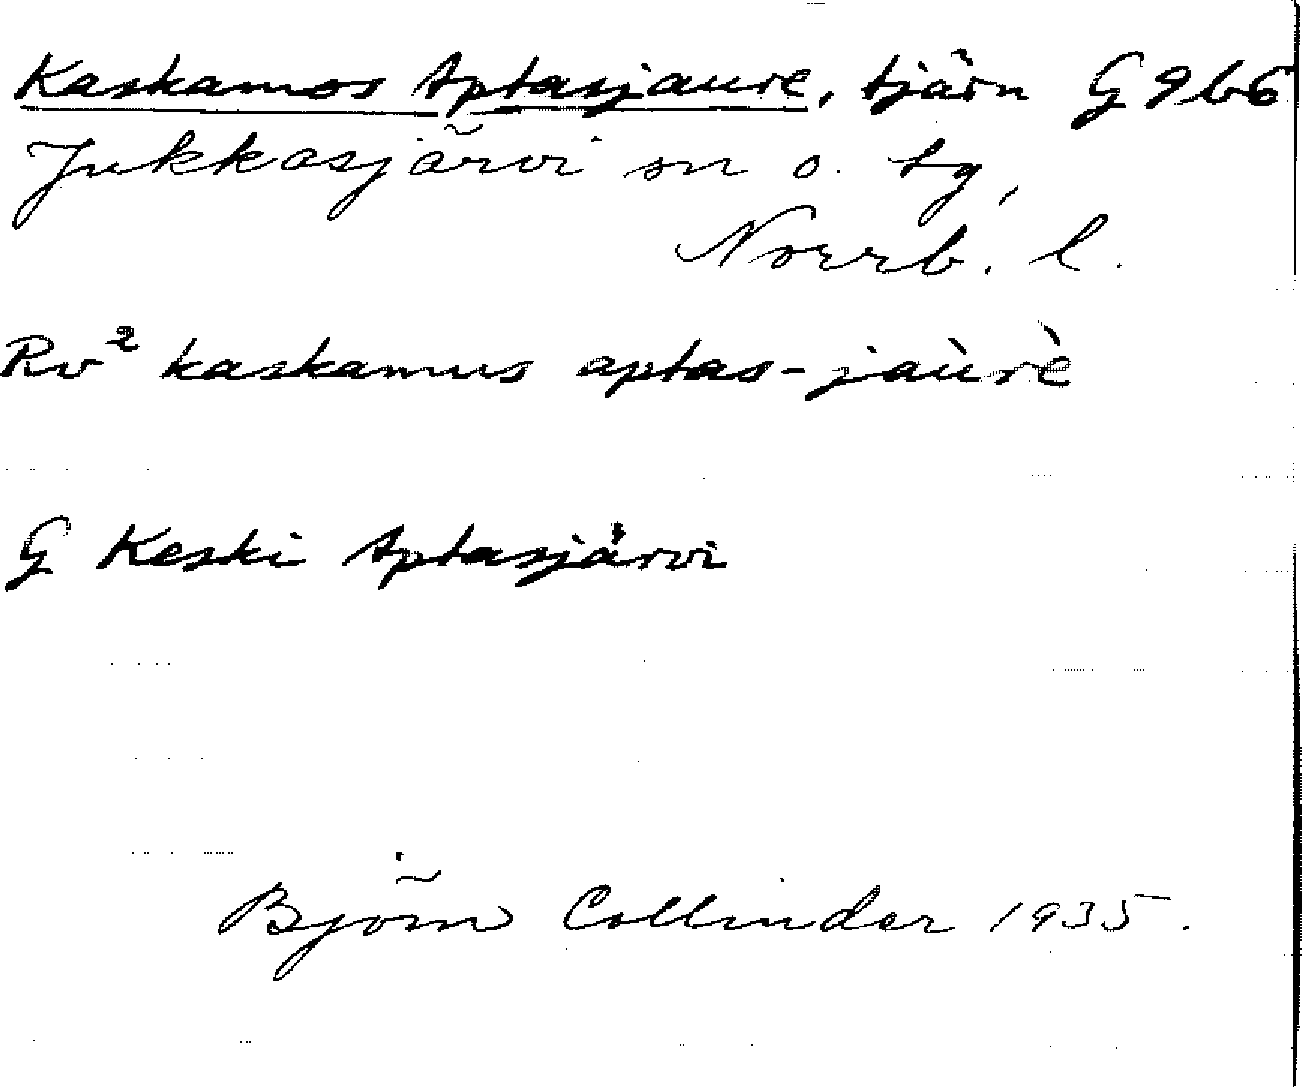 Kaskamos Aptasjaure, tjärn G 9 b 6
Jukkasjärvi sn o. tg,
Norrb. l.
Rv² kaskamus aptas-jaùrè
G Keski Aptasjärvi
Björn Collinder 1935.